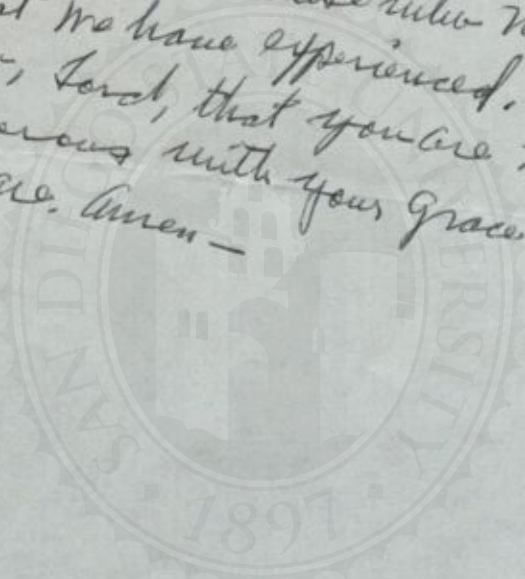 we have experienced.
, Lord, that you are
with your Grace
Amen —
SAN DIEGO STATE UNIVERSITY
1897